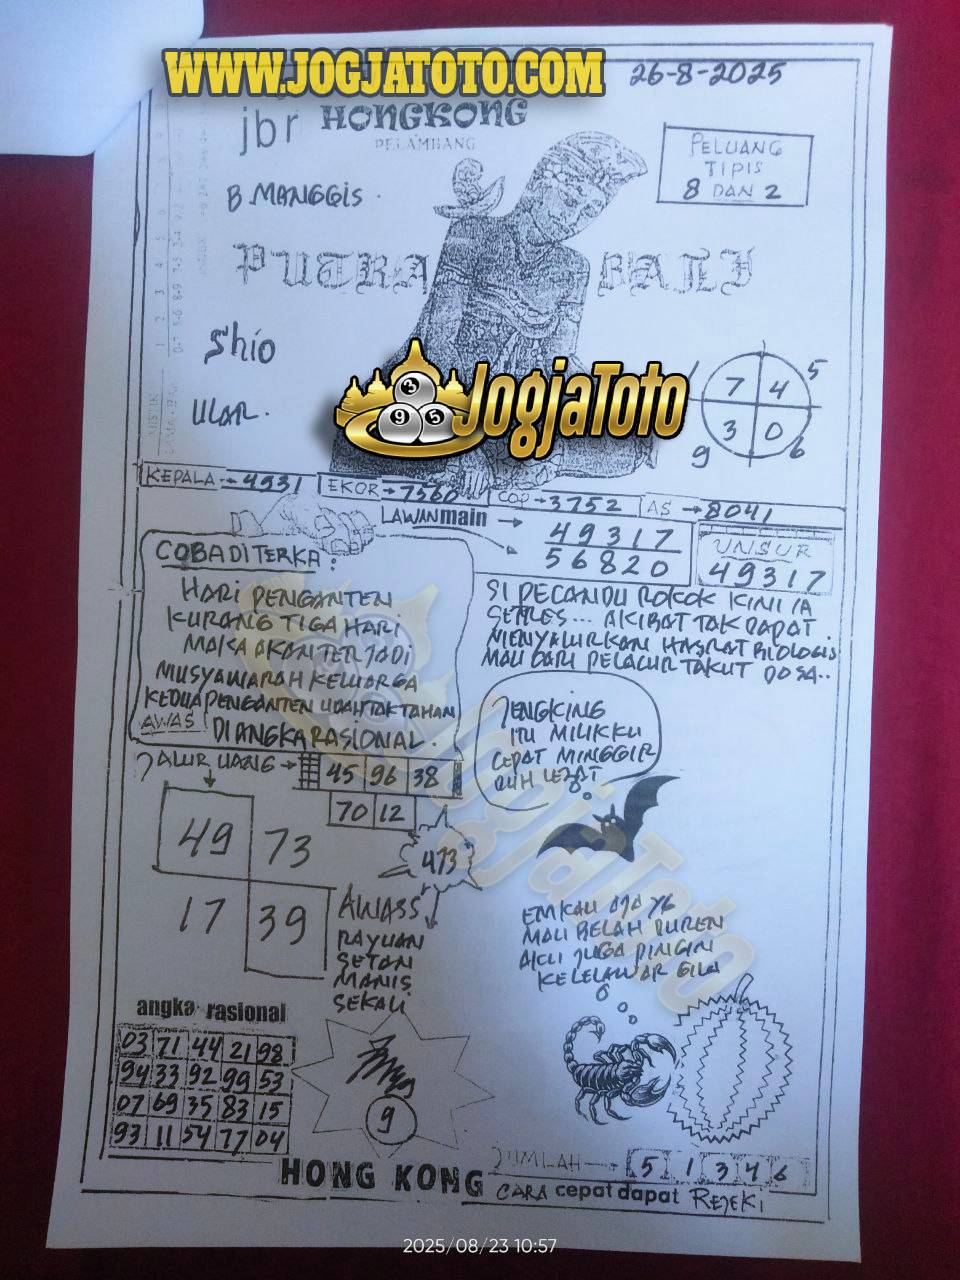 WWW.JOGJATOTO.COM
26-8-2025
jbr HONGKONG
PELAMBANG
PELUANG
TIPIS
8 DAN 2
B. MANGGIS.
PUTRA BALI
Shio
ULAR.
JogjaToto
3
9 5
1 5
7 4
3 0
9 6
KEPALA → 4931 EKOR → 7560 COP → 3752 AS → 8041
LAWAN main → 49317
56820
UNSUR
49317
COBA DITERKA :
HARI PENGANTEN
KURANG TIGA HARI
MAKA AKAN TERJADI
MUSYAWARAH KELUARGA
KEDUA PENGANTEN UDAH TAK TAHAN
AWAS DI ANGKA RASIONAL.
SI PECANDU ROKOK KINI IA
SETRES... AKIBAT TAK DAPAT
MENYALURKAN HASRAT BIOLOGIS
MAU CARI PELACUR TAKUT DOSA..
JENGKING
ITU MILIKKU
CEPAT MINGGIR
DUH LEZAT
JALUR UANG → 45 96 38
70 12
49 73
17 39
473
AWASS
RAYUAN
SETAN
MANIS
SEKALI
EMKAU AJA YG
MAU BELAH DUREN
AKU JUGA PINGIN
KELELAWAR GILA
angka rasional
03 71 44 21 98
94 33 92 99 53
07 69 35 83 15
93 11 54 77 04
9
JUMLAH → 5 1 3 4 6
HONG KONG CARA cepat dapat REJEKI
JogjaToto
2025/08/23 10:57